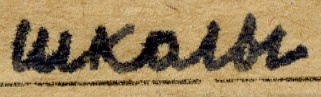 шкалы